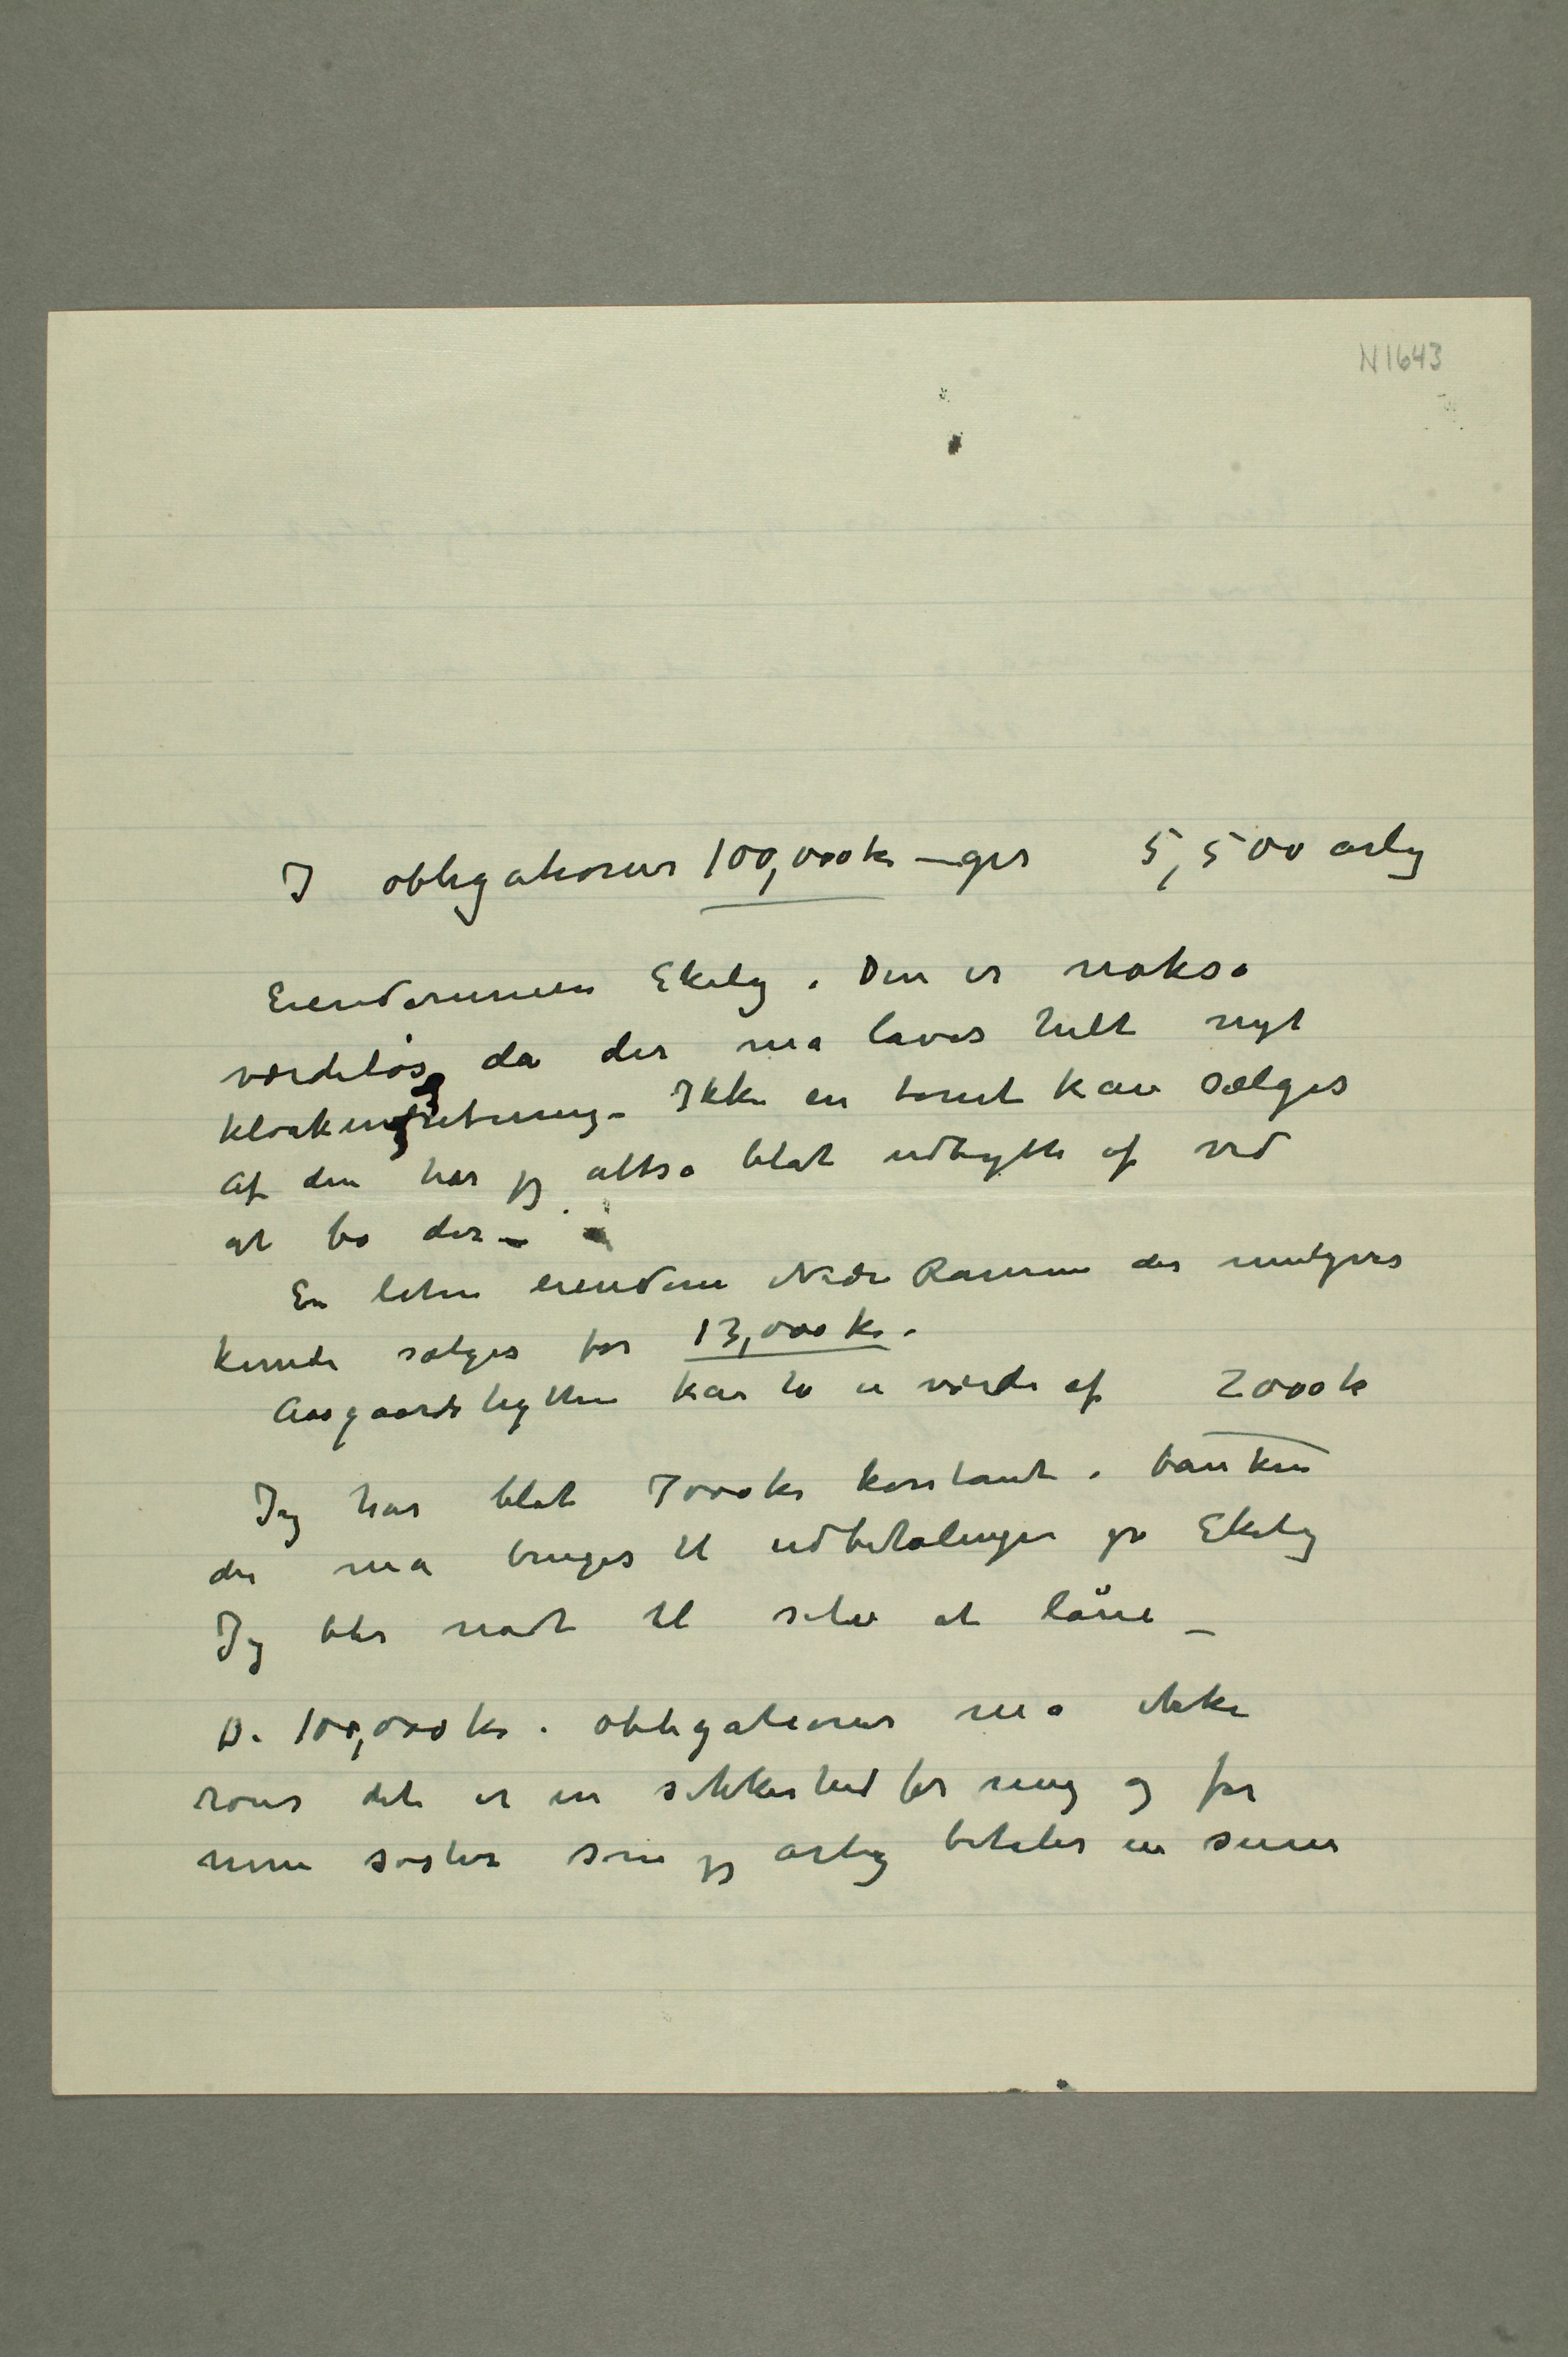 N1643
I obligationer 100,000 kr – ger 5,500 årlig
Eiendommen Ekely. Den er nokså
værdiløs da der må laves helt nyt
kloak
Ikke en tomt kan sælges
Af den har jeg altså blot udbytte af ved
at bo der –
En liten eiendom Nedre Ramme der muligvis
kunde sælges for 13,000 kr.
Aasgaardshytten kan ha en værdi af 2000 k
Jeg har blot 7000 kr kontant i banken
der må bruges til udbetalinger på Ekely
Jeg blir nødt til selv at låne –
De 100,000 kr i obligationer må ikke
røres det er en sikkerhed for meg og for
min søster som jeg årlig betaler en sum